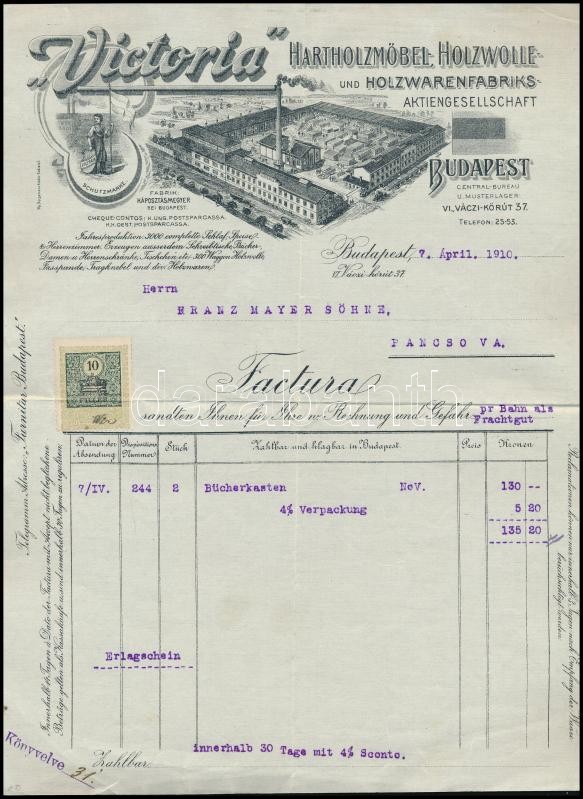 „Victoria“
HARTHOLZMÖBEL-, HOLZWOLLE-
UND HOLZWARENFABRIKS-
AKTIENGESELLSCHAFT
BUDAPEST
CENTRAL-BUREAU
U. MUSTERLAGER:
VI., VÁCZI-KÖRÚT 37.
TELEFON: 25-53.
SCHUTZMARKE.
FABRIK:
KÁPOSZTÁSMEGYER
BEI BUDAPEST.
CHEQUE-CONTOS: K. UNG. POSTSPARCASSA.
K.K. OEST. POSTSPARCASSA.
Jahresproduktion: 3000 complette Schlaf-, Speise-
& Herrenzimmer. Erzeugen ausserdem Schreibtische, Bücher-,
Damen u. Herrenschränke, Tischchen etc. 300 Waggon Holzwolle,
Fassspunde, Tragknebel und div. Holzwaren.
Budapest, 7. April. 1910.
VI Váczi-körút 37.
Herrn
FRANZ MAYER SÖHNE,
PANCSOVA.
10
FILLÉR
Factura
sandten Ihnen für Ihre w. Rechnung und Gefahr pr Bahn als
Frachtgut
Datum der Absendung
Dispositions Nummer
Stück
Zahlbar und klagbar in Budapest.
Preis
Kronen
7/IV. 244 2 Bücherkasten NoV. 130 --
4% Verpackung 5 20
135 20
Erlagschein
innerhalb 30 Tage mit 4% Sconto.
Zahlbar
Könyvelve 31.
Telegramm Adresse: „Furnitur Budapest.“
Innerhalb 14 Tagen à Dato der Factura mit Accept nicht beglichene
Beträge gelten als Kassarkäufe u. sind innerhalb 30 Tagen zu regulieren.
Reclamationen können nur innerhalb 8 Tagen nach Empfang der Waare
berücksichtigt werden.
darabanth